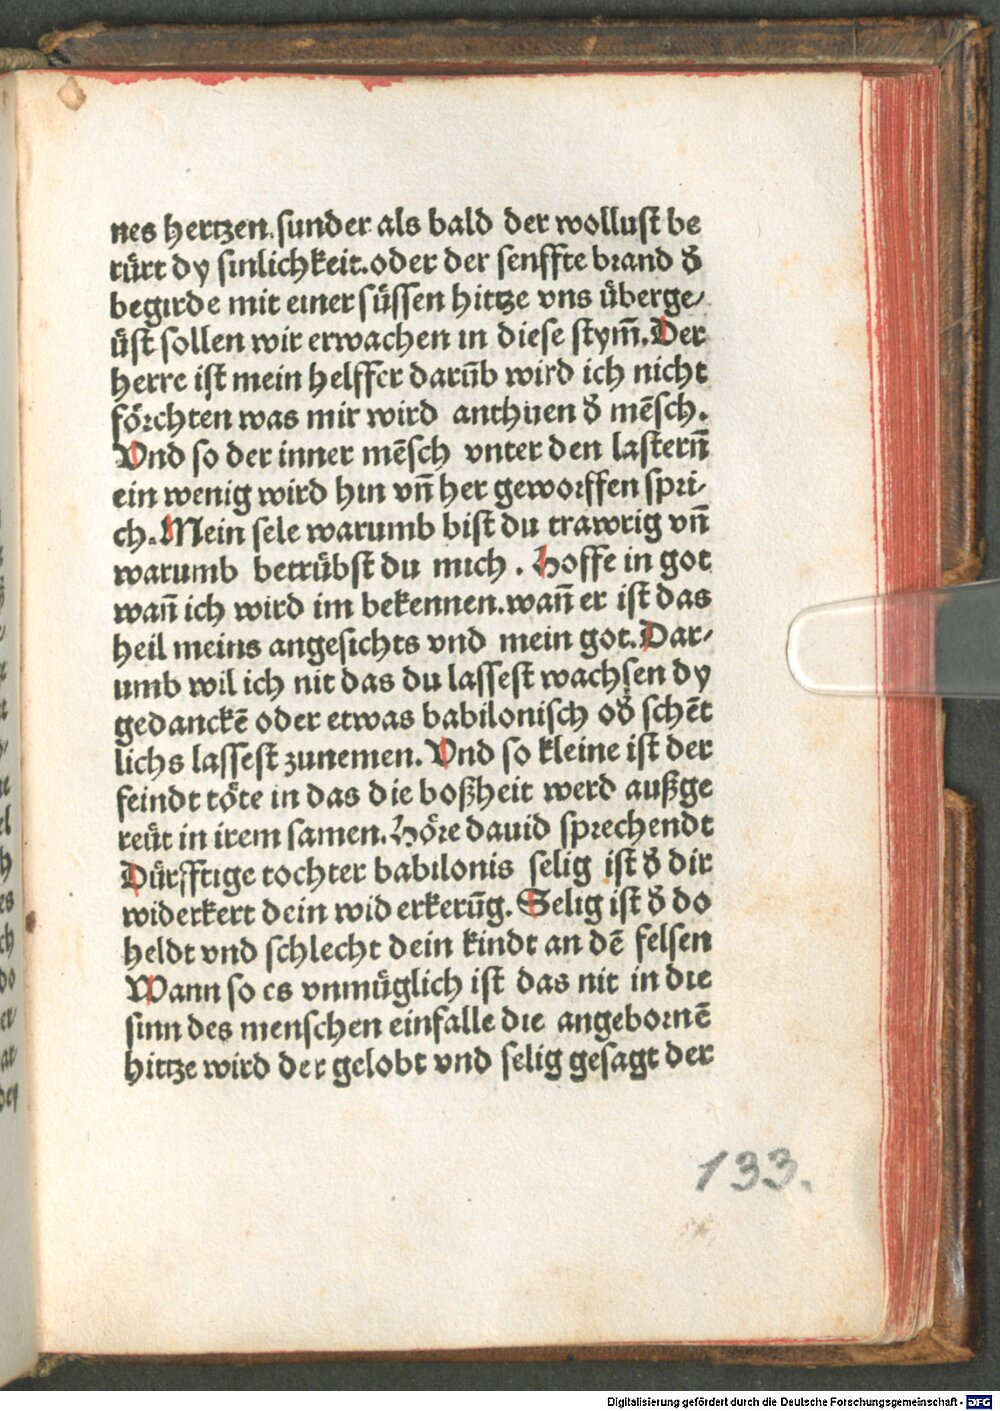 nes hertzen.sunder als bald der wollust be
rürt dy sinlichkeit.oder der senffte brand d̕
begirde mit einer süssen hittze vns überge/
üst sollen wir erwachen in diese stym̄.Der
herre ist mein helffer darūb wird ich nicht
förchten was mir wird anthuen d̕ mēsch.
Vnd so der inner mēsch vnter den lastern̄
ein wenig wird hin vn̄ her geworffen spri/
ch.Mein sele warumb bist du trawrig vn̄
warumb betrübst du mich . Hoffe in got
wan̄ ich wird im bekennen.wan̄ er ist das
heil meins angesichts vnd mein got.Dar/
umb wil ich nit das du lassest wachsen dy
gedanckē oder etwas babilonisch od̕ schēt
lichs lassest zunemen. Vnd so kleine ist der
feindt töte in das die boßheit werd außge
reüt in irem samen.Höre dauid sprechendt
Dürfftige tochter babilonis selig ist d̕ dir
widerkert dein wid erkerūg.Selig ist d̕ do
heldt vnd schlecht dein kindt an dē felsen
Wann so es vnmüglich ist das nit in die
sinn des menschen einfalle die angebornē
hittze wird der gelobt vnd selig gesagt der
133.
Digitalisierung gefördert durch die Deutsche Forschungsgemeinschaft - DFG